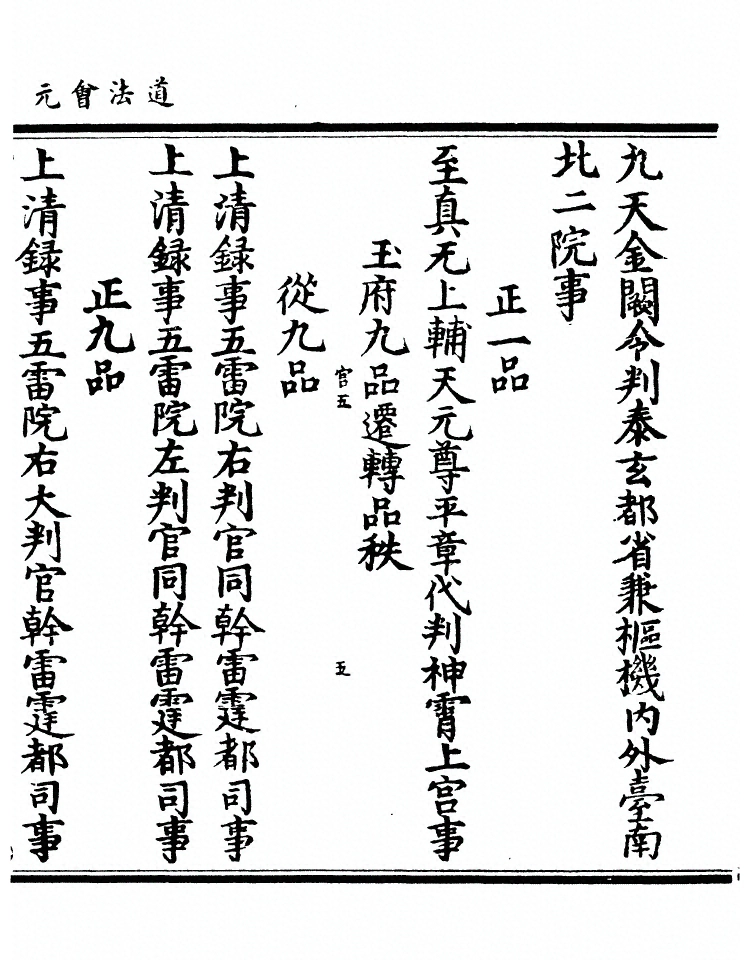 道法會元
九天金闕令判泰玄都省兼樞機內外臺南
北二院事
正一品
至真无上輔天元尊平章代判神霄上宮事
玉府九品遷轉品秩
官五
五
從九品
上清録事五雷院右判官同幹雷霆都司事
上清録事五雷院左判官同幹雷霆都司事
正九品
上清録事五雷院右大判官幹雷霆都司事